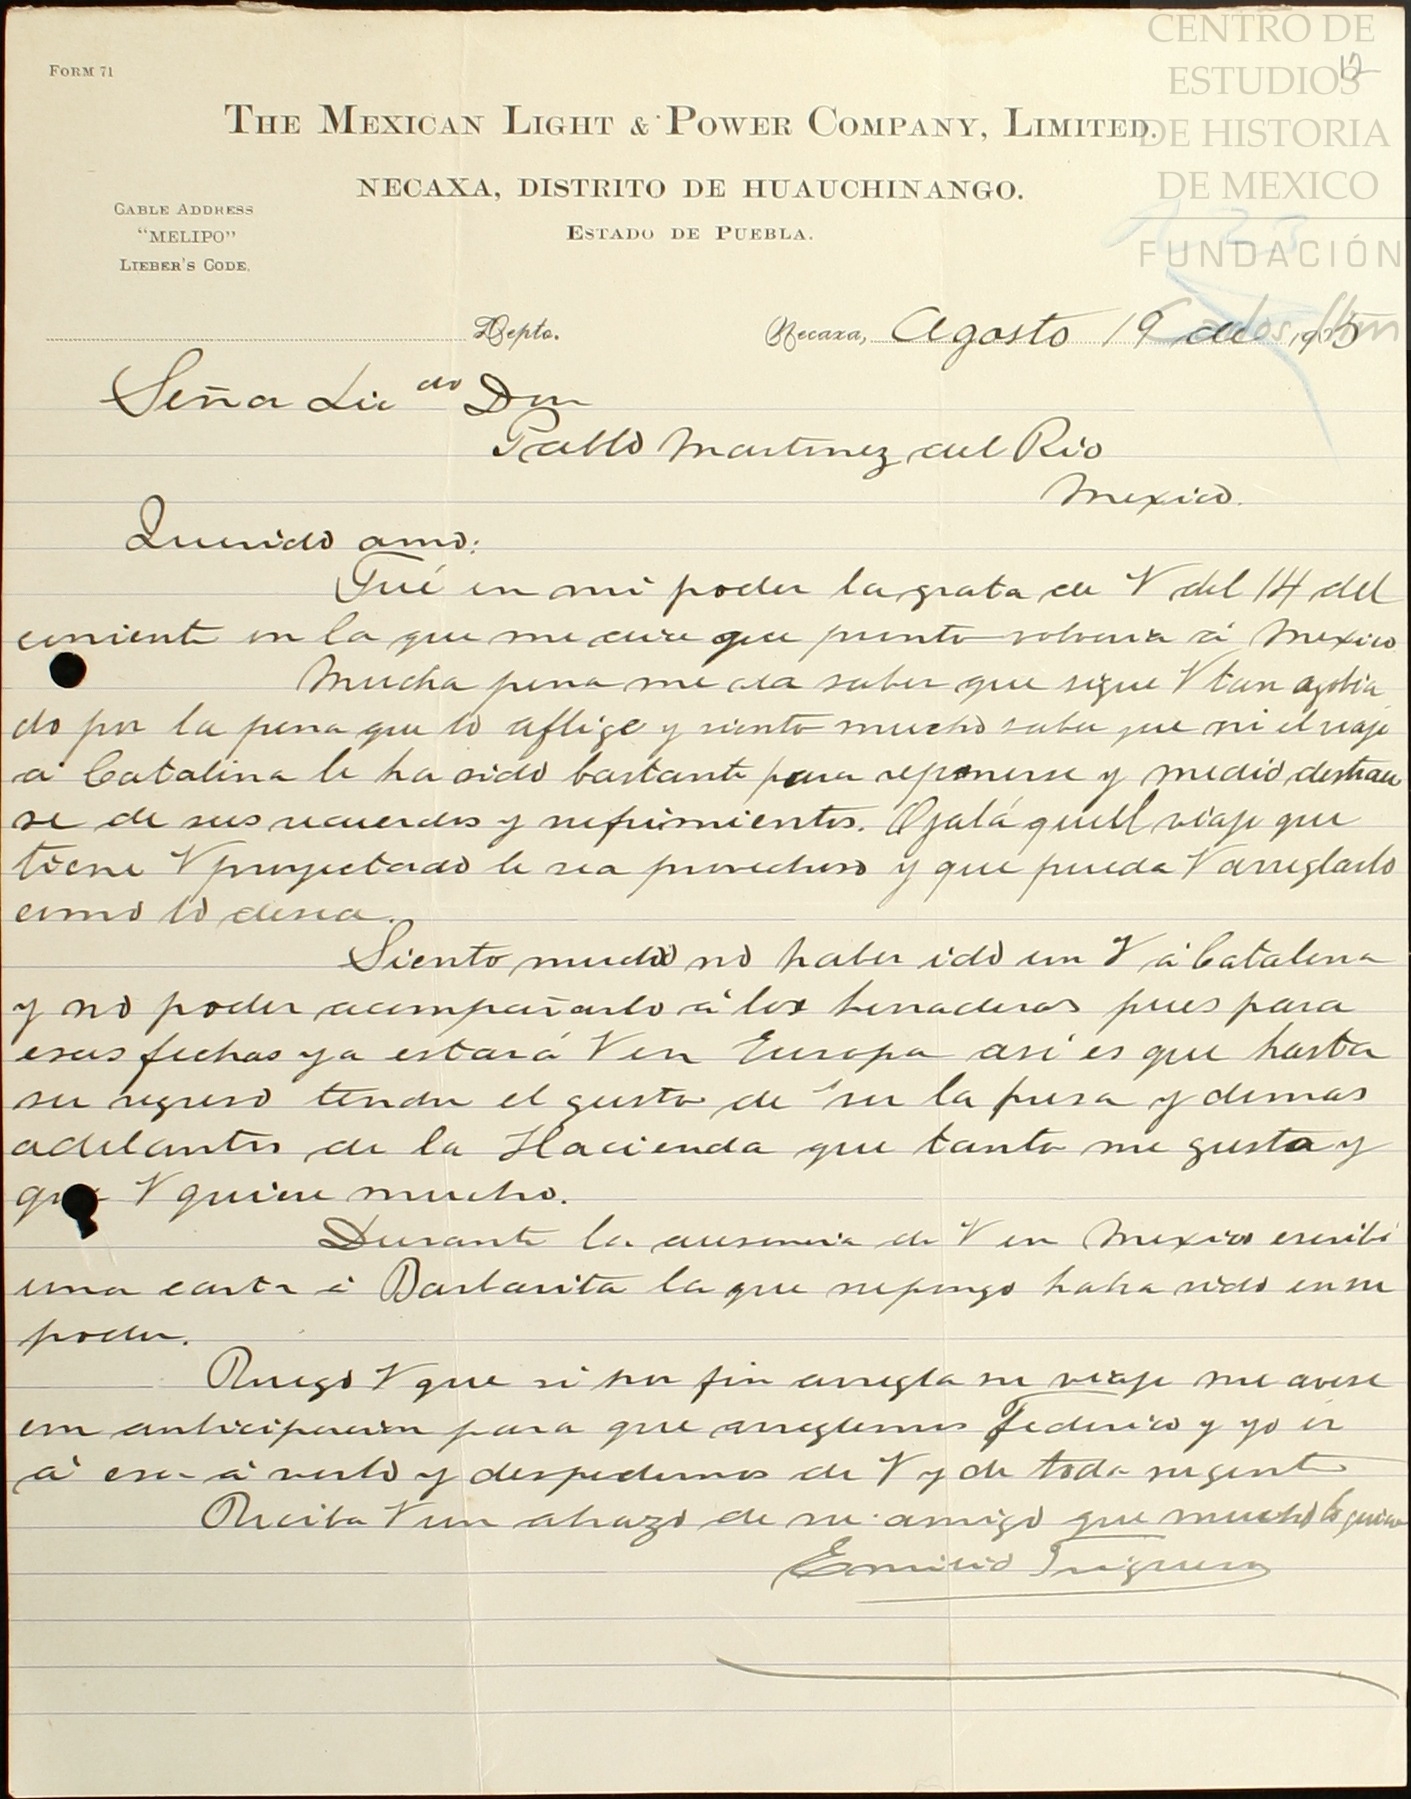 CENTRO DE
ESTUDIOS
DE HISTORIA
DE MEXICO
FUNDACIÓN
Carlos Slim
12
FORM 71
THE MEXICAN LIGHT & POWER COMPANY, LIMITED.
NECAXA, DISTRITO DE HUAUCHINANGO.
ESTADO DE PUEBLA.
CABLE ADDRESS
"MELIPO"
LIEBER'S CODE.
Depto.
Necaxa, Agosto 19 de 1905
Señor Lic do Don
Pablo Martinez del Rio
Mexico.
Querido amo:
Fué en mi poder la grata de V del 14 del
corriente en la que me dice que pronto volveria á Mexico
Mucha pena me da saber que sigue V tan agobia
do por la pena que lo aflige y siento mucho saber que ni el viaje
á Catalina le ha sido bastante para reponerse y medio distraer
se de sus recuerdos y sufrimientos. Ojalá que el viaje que
tiene V proyectado le sea provechoso y que pueda V arreglarlo
como lo desea.
Siento mucho no haber ido con V á Catalina
y no poder acompañarlo á los herraderos pues para
esas fechas ya estará V en Europa asi es que hasta
su regreso tendre el gusto de ver la presa y demas
adelantos de la Hacienda que tanto me gusta y
que V quiere mucho.
Durante la ausencia de V en Mexico escribi
una carta á Barbarita la que supongo habra sido en su
poder.
Ruego V que si por fin arregla su viaje me avise
con anticipacion para que arreglemos Federico y yo ir
á esa á verlo y despedirnos de V y de toda su gente
Reciba V un abrazo de su amigo que mucho lo quiere
Emilio Trigueros